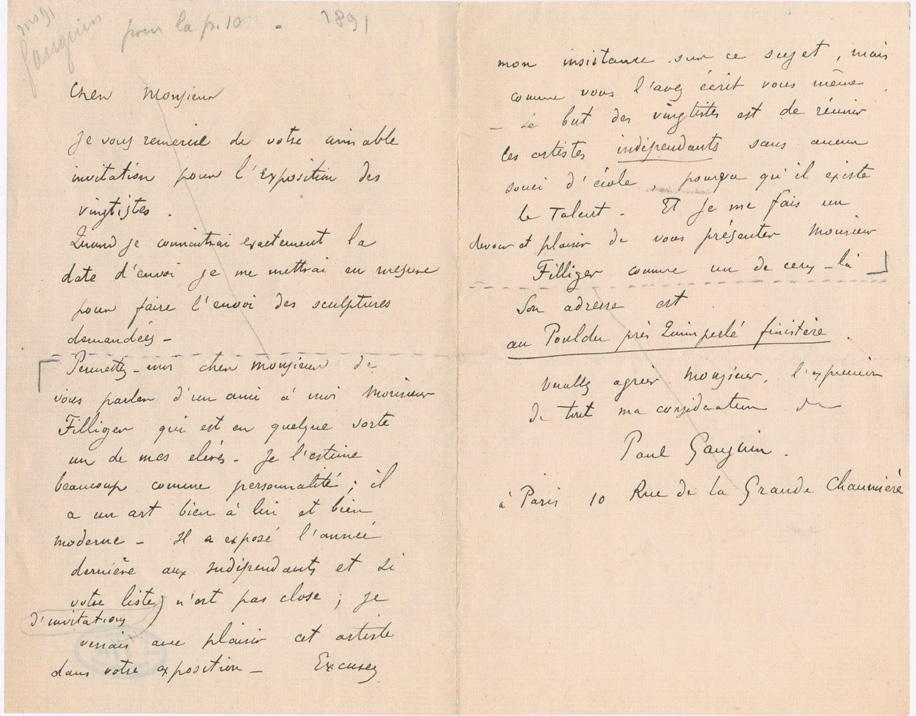 pour la p. 10 - 1891
Gauguin
Cher Monsieur
Je vous remercie de votre aimable
invitation pour l'Exposition des
vingtistes.
Quand je connaitrai exactement la
date d'envoi je me mettrai en mesure
pour faire l'envoi des sculptures
demandées -
Permettez-moi cher monsieur de
vous parler d'un ami à moi Monsieur
Filliger qui est en quelque sorte
un de mes elevés - Je l'estime
beaucoup comme personnalité ; il
a un art bien à lui et bien
moderne - Il a exposé l'année
dernière aux Indépendants et si
votre liste n'est pas close ; je
d'invitations
verrais avec plaisir cet artiste
dans votre exposition - Excusez
mon insistance sur ce sujet, mais
comme vous l'avez écrit vous même
- Le but des vingtistes est de réunir
les artistes indépendants sans aucun
souci d'école, pourvu qu'il existe
le Talent - Et je me fais un
devoir et plaisir de vous présenter Monsieur
Filliger comme un de ceux-là
Son adresse est
au Pouldu près Quimperlé finistère.
Veuillez agréer Monsieur, l'expression
de tout ma considération
Paul Gauguin.
à Paris 10 Rue de la Grande Chaumière